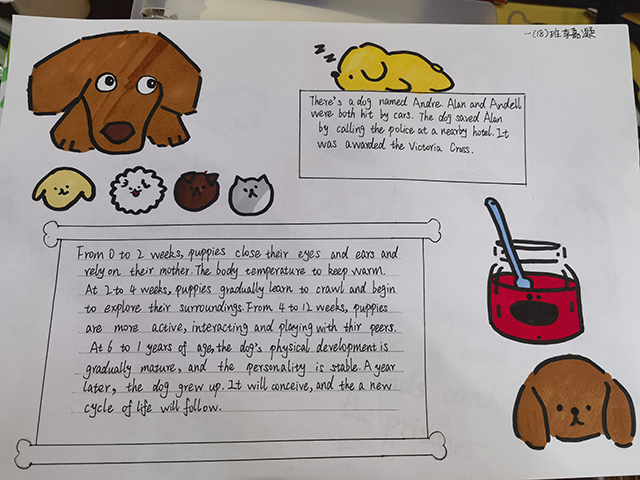 一(18)班
zzz
There's a dog named Andre. Alan and Andell
were both hit by cars. The dog saved Alan
by calling the police at a nearby hotel. It
was awarded the Victoria Cross.
From 0 to 2 weeks, puppies close their eyes and ears and
rely on their mother. The body temperature to keep warm.
At 2 to 4 weeks, puppies gradually learn to crawl and begin
to explore their surroundings. From 4 to 12 weeks, puppies
are more active, interacting and playing with thir peers.
At 6 to 1 years of age, the dog's physical development is
gradually mature, and the personality is stable. A year
later, the dog grew up. It will conceive, and the a new
cycle of life will follow.